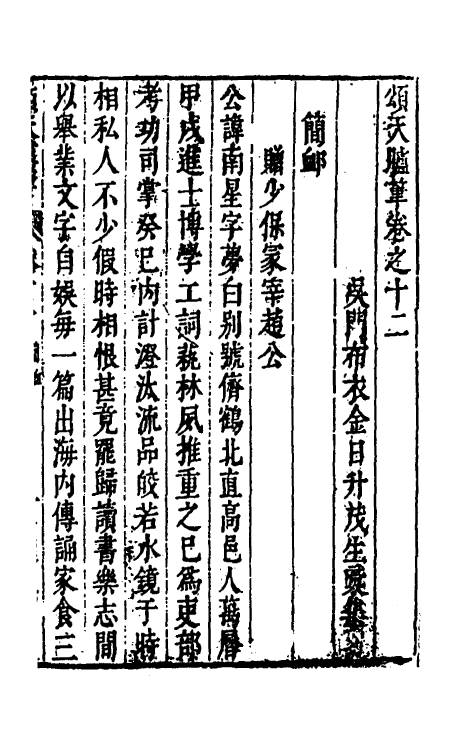 頌天臚筆卷之十二
吳門布衣金日升茂生
簡卹
贈少保冢宰趙公
公諱南星字夢白別號儕鶴北直高邑人萬曆
甲戌進士博學工詞蓺林夙推重之已為吏部
考功司掌癸巳內計澄汰流品皎若水鏡于時
相私人不少假時相恨甚竟罷歸讀書樂志間
以舉業文字自娛每一篇出海內傳誦家食三